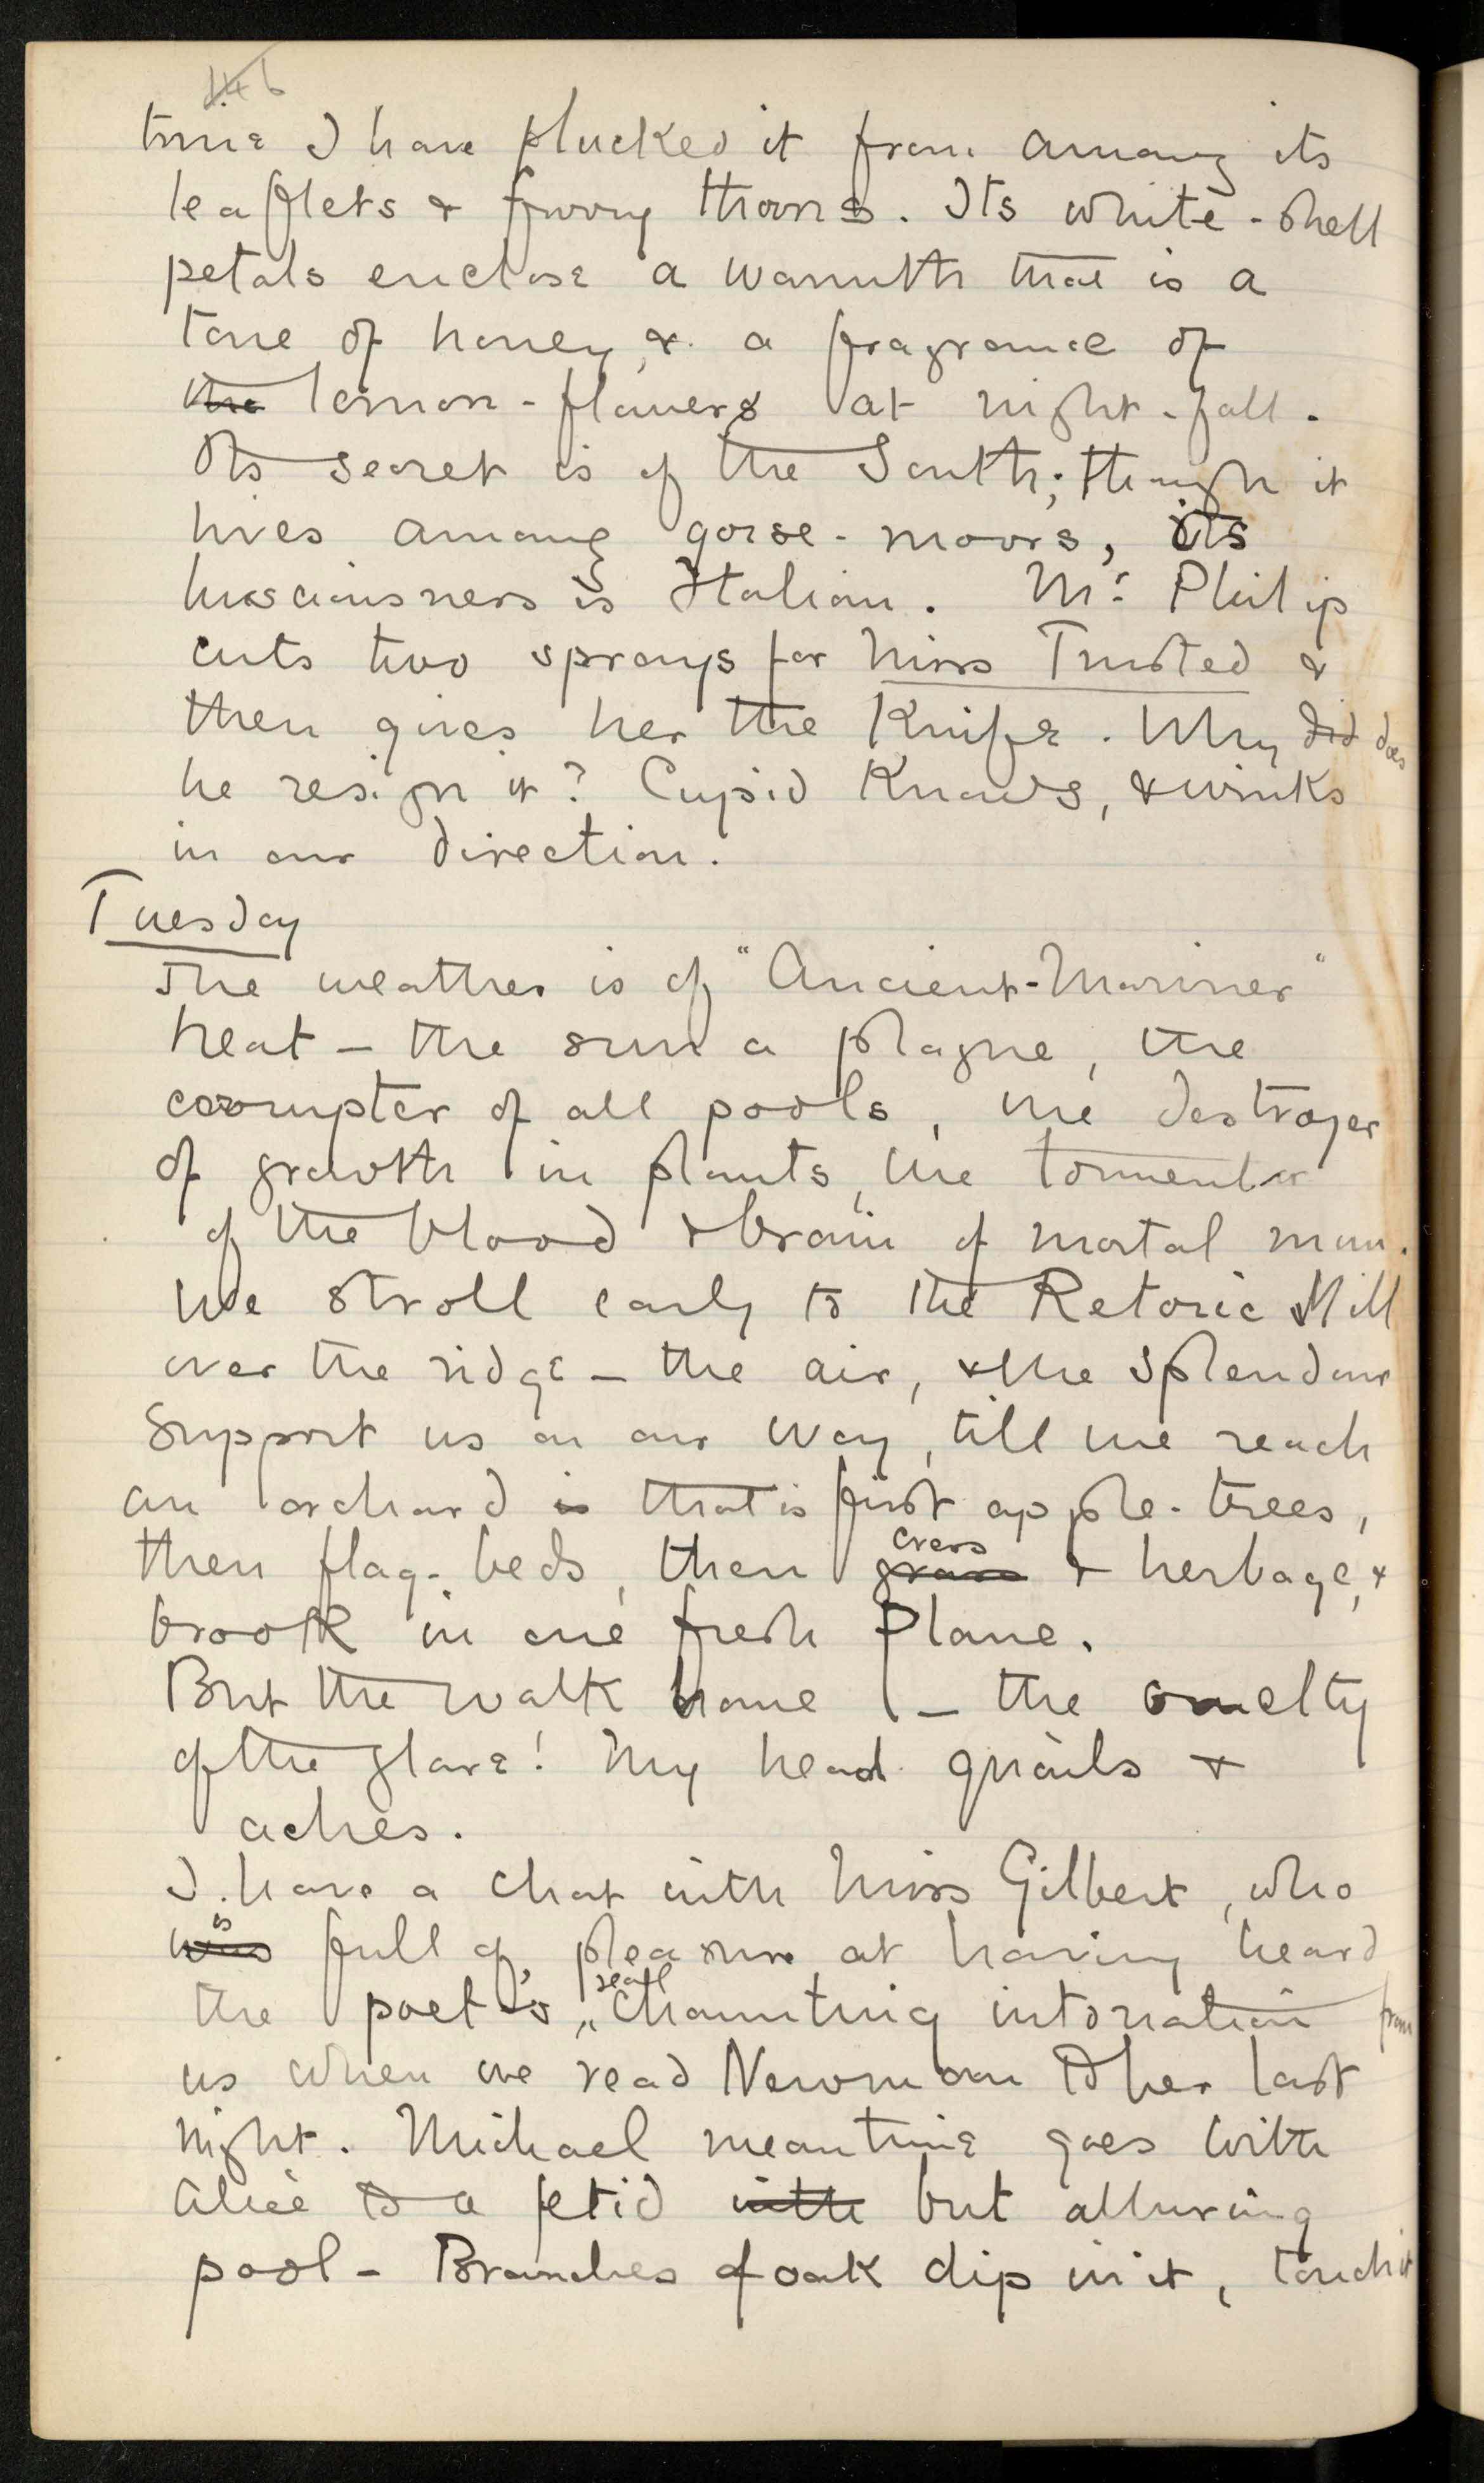 146
time I have plucked it from among its
leaflets & furry thorns. Its white-shell
petals enclose a warmth that is a
tone of honey, & a fragrance of
the lemon-flowers at night-fall.
Its secret is of the South; though it
lives among gorse-moors, its
lusciousness is Italian. Mr. Philip
cuts two sprays for Miss Trusted &
then gives her the Knife. Why did does
he resign it? Cupid Knows, & winks
in our direction.
Tuesday
The weather is of "Ancient-Mariner"
heat – the sun a plague, the
corrupter of all pools, the destroyer
of growth in plants, the tormentor
of the blood & brain of mortal man.
We stroll early to the Retoric Mill
over the ridge – the air, & the splendour
support us on our way, till we reach
an orchard is that is first apple-trees,
then flag-beds, then grass cress & herbage, &
brook in one fresh plane.
But the walk home – the cruelty
of the glare! My head quails &
aches.
I have a chat with Miss Gilbert, who
was is full of pleasure at having heard
the poet's real chaunting intonation from
us when we read Newman to her last
night. Michael meantime goes with
Alice to a fetid with but alluring
pool – Branches of oak dip in it, touch it